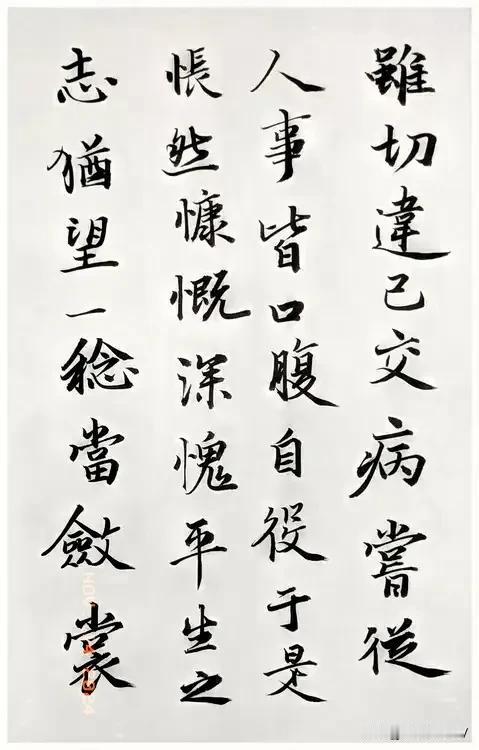 雖切違己交病嘗從
人事皆口腹自役于是
悵然慷慨深愧平生之
志猶望一稔當斂裳